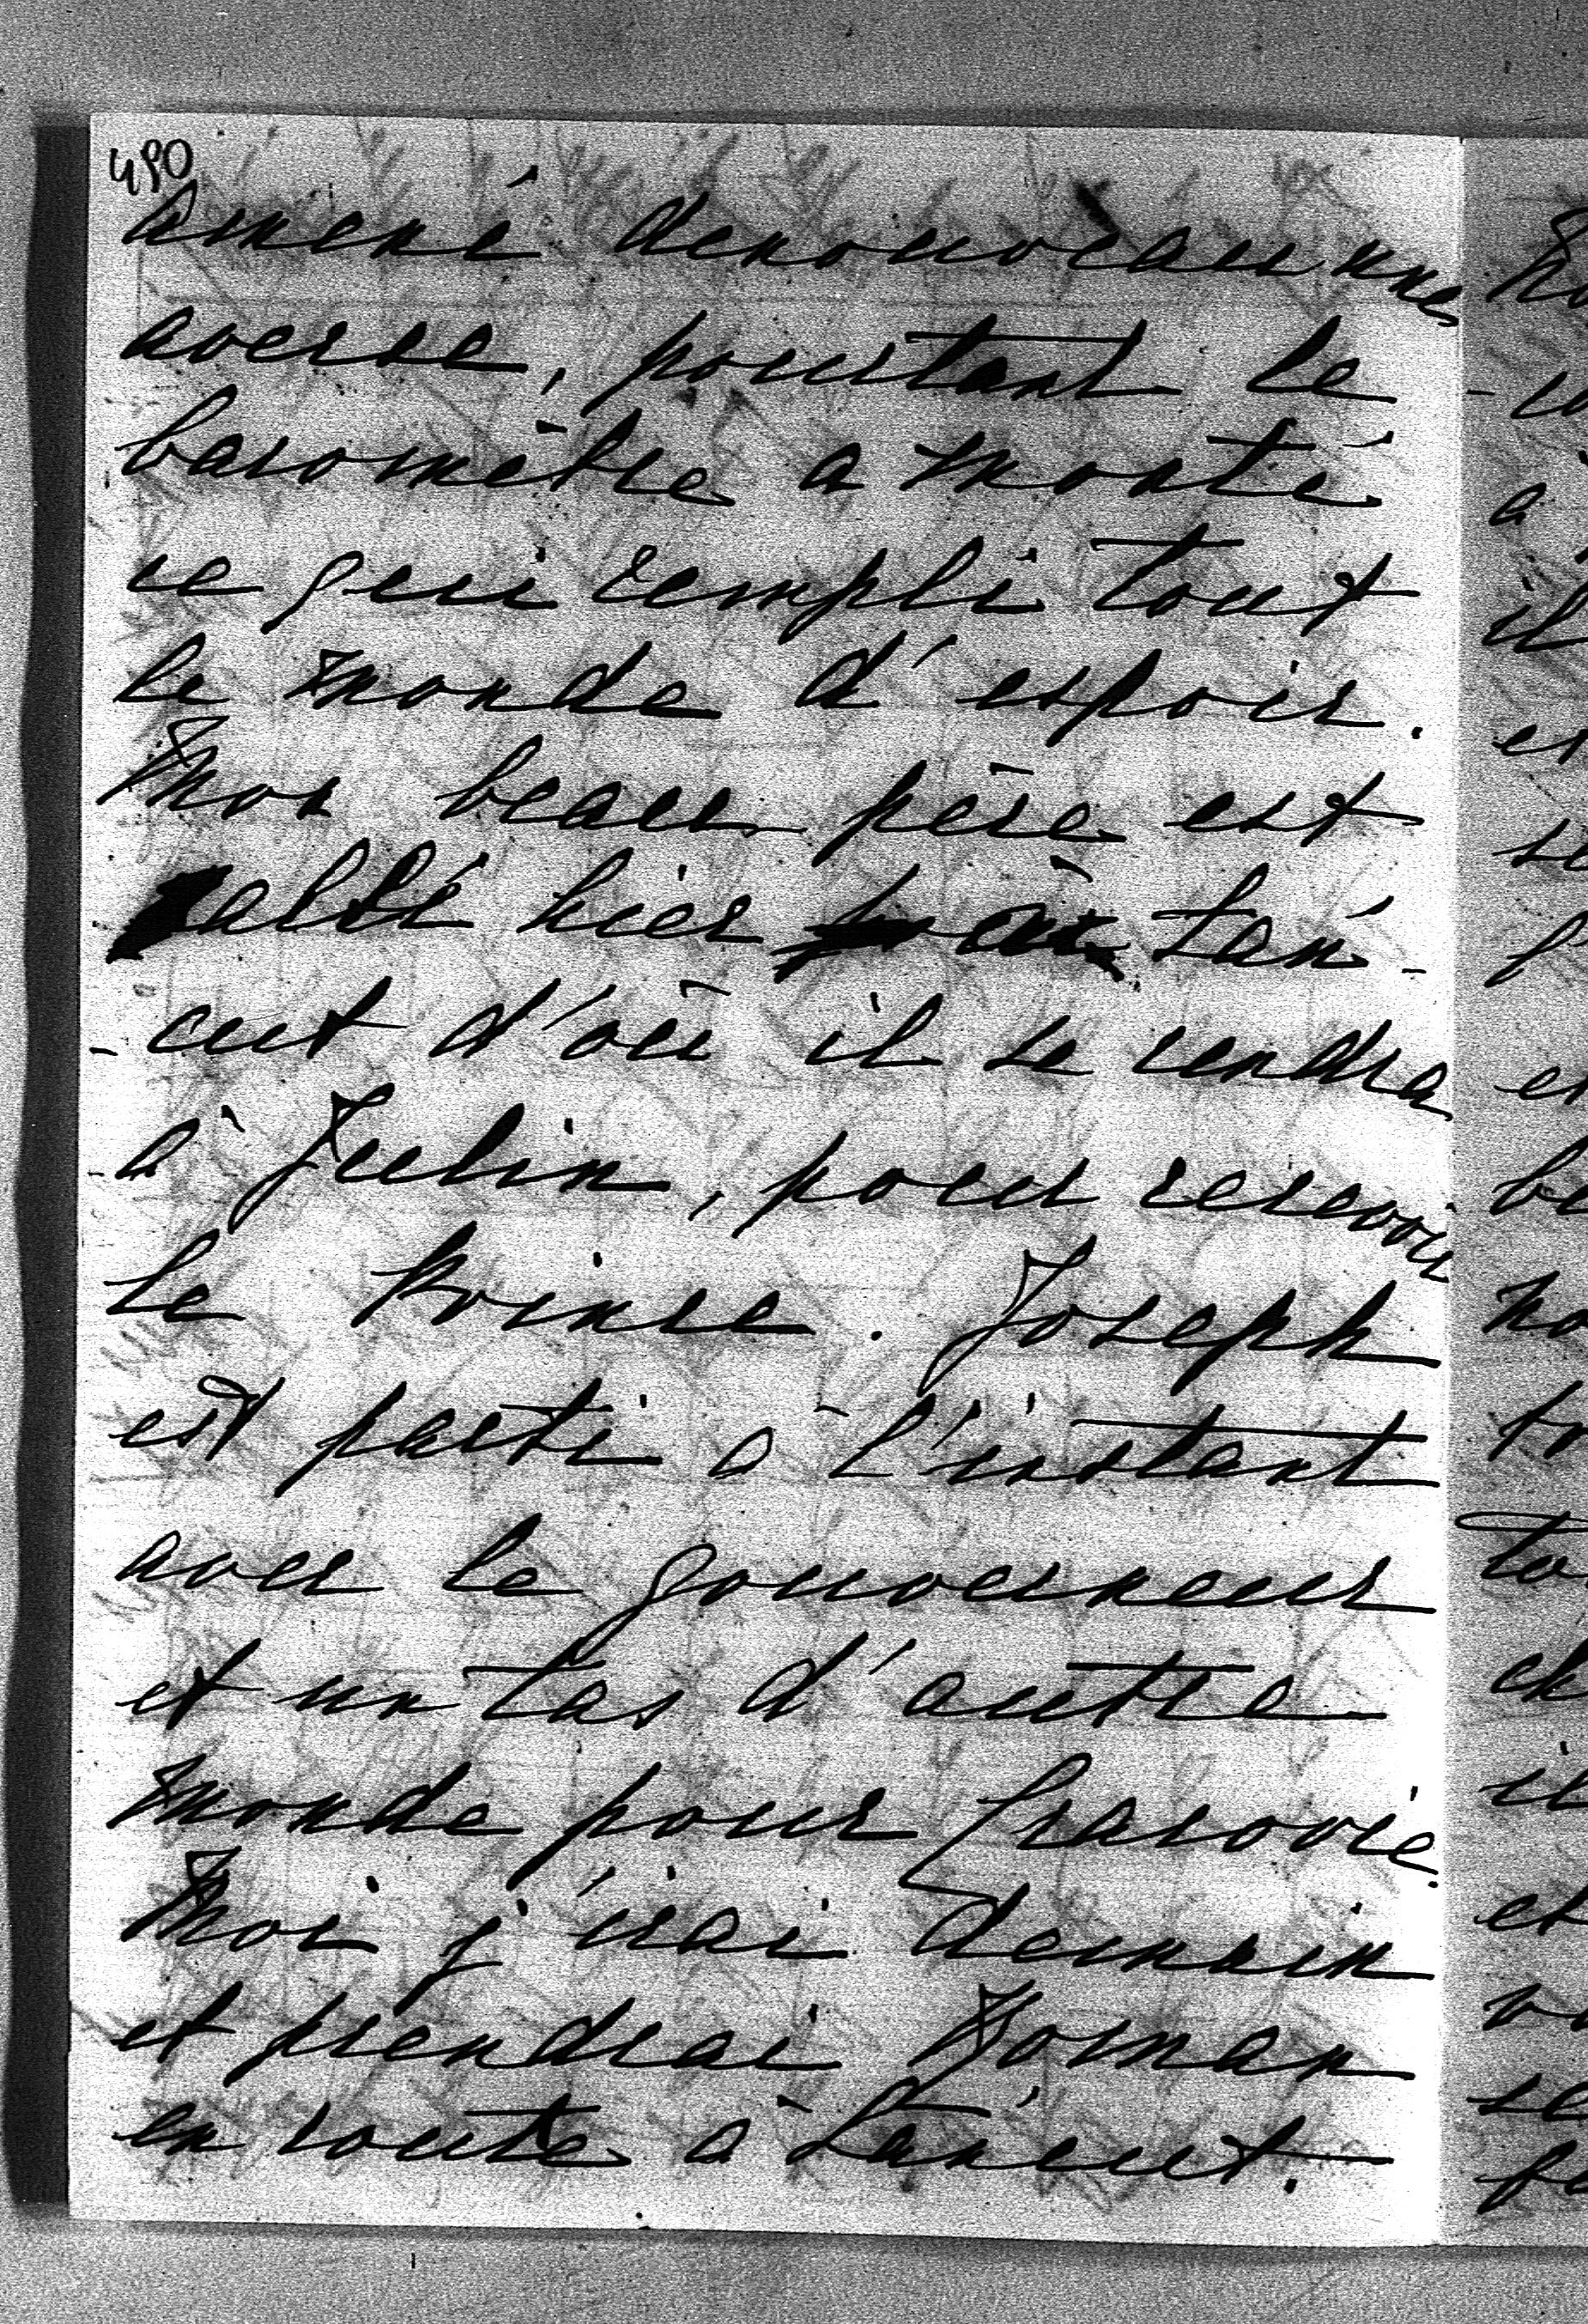 490
amené denouveau une
averse, pourtant le
baromètre a monté
ce qui rempli tout
le monde d'espoir.
Mon beau-père est
allé hier à Łań-
-cut d'où il se rendra
à Julin, pour recevoir
le Prince. Joseph
est parti à l'instant
avec le gouverneur
et un tas d'autre
monde pour Cracovie.
Moi j'irai demain
et prendrai Roman
en route à Łańcut.